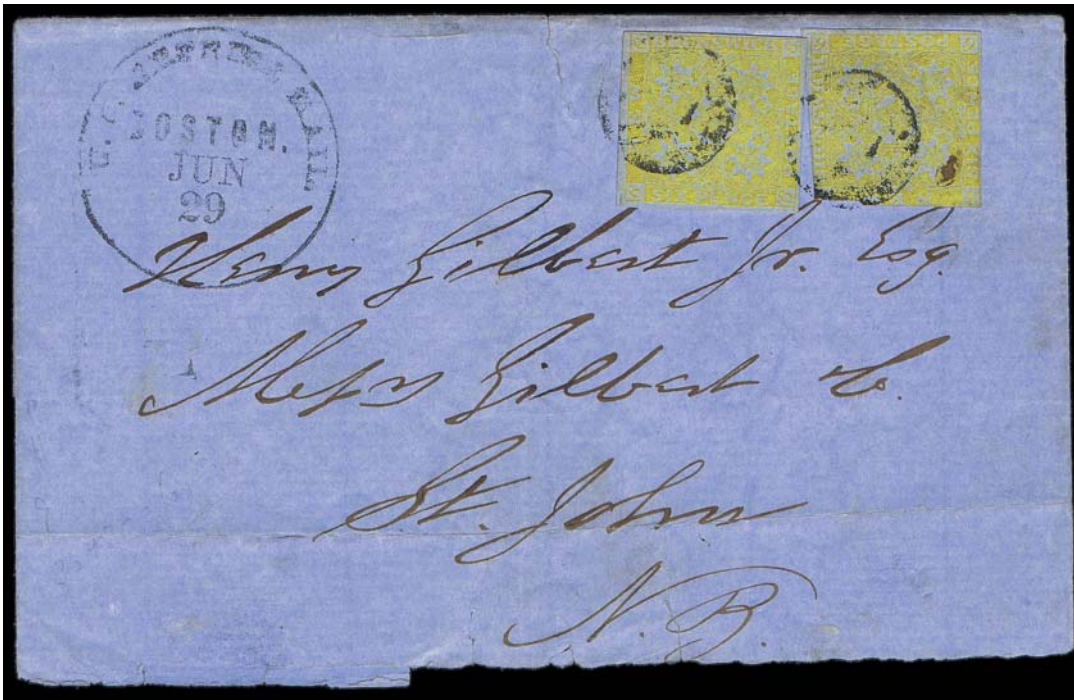 U. S. EXPRESS MAIL.
BOSTON.
JUN
29
Henry Gilbert Jr. Esq.
Messrs Gilbert Co.
St. John
N. B.